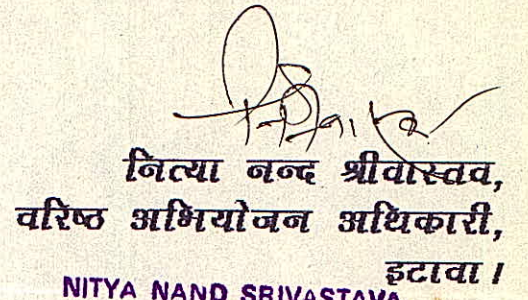 नित्या नन्द श्रीवास्तव,
वरिष्ठ अभियोजन अधिकारी,
इटावा।
NITYA NAND SRIVASTAVA